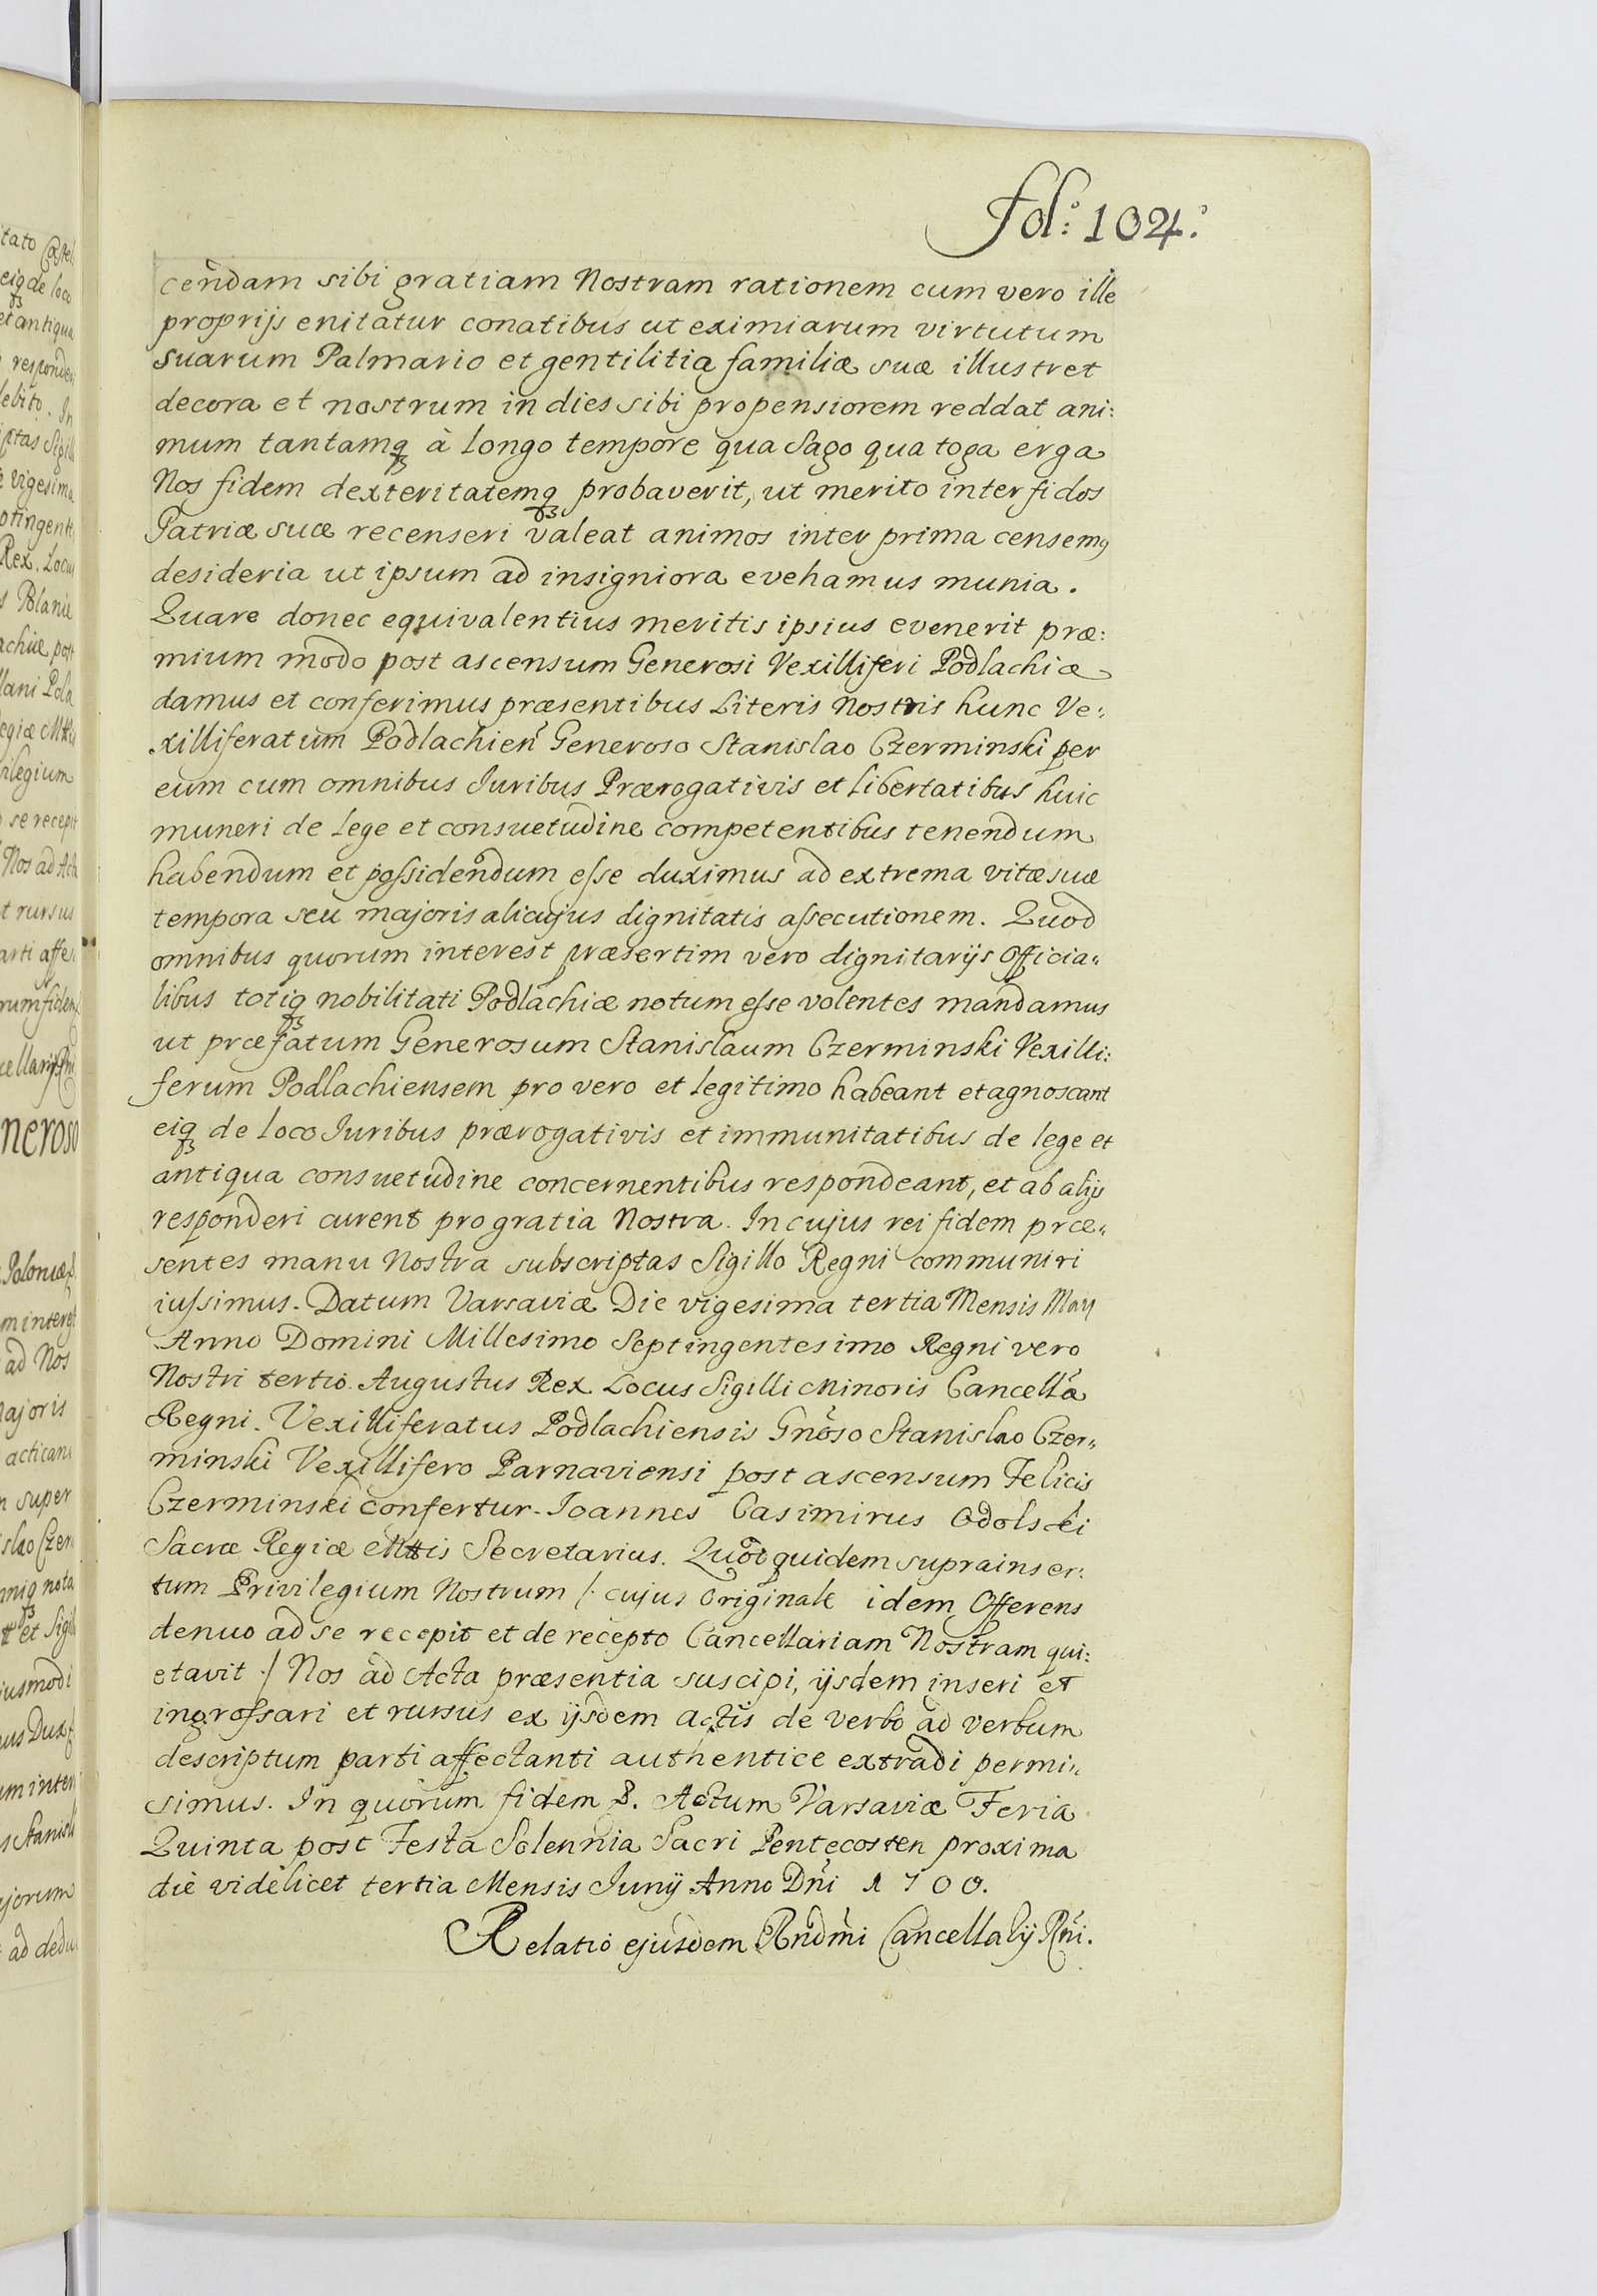 Fol: 104.
cendam sibi gratiam Nostram rationem cum vero ille
proprijs enitatur conatibus ut eximiarum virtutum
suarum Palmario et gentilitia familiæ suæ illustret
decora et nostrum in dies sibi propensiorem reddat ani:
mum tantamq3 à longo tempore qua Sago qua toga erga
Nos fidem dexteritatemq3 probaverit, ut merito inter fidos
Patriæ suæ recenseri valeat animos inter prima censemq
desideria ut ipsum ad insigniora evehamus munia.
Quare donec equivalentius meritis ipsius evenerit præ:
mium modo post ascensum Generosi Vexilliferi Podlachiæ
damus et conferimus præsentibus Literis Nostris hunc Ve:
xilliferatum Podlachien Generoso Stanislao Czerminski per
eum cum omnibus Iuribus Prærogativis et libertatibus huic
muneri de lege et consuetudine competentibus tenendum
habendum et poſsidendum eſse duximus ad extrema vitæ suæ
tempora seu majoris alicujus dignitatis aſsecutionem. Quod
omnibus quorum interest præsertim vero dignitarijs Officia=
libus totiq3 nobilitati Podlachiæ notum eſse volentes mandamus
ut præfatum Generosum Stanislaum Czerminski Vexilli:
ferum Podlachiensem pro vero et legitimo habeant et agnoscant
eiq3 de loco Iuribus prærogativis et immunitatibus de lege et
antiqua consuetudine concernentibus respondeant, et ab alijs
responderi curent pro gratia Nostra. In cujus rei fidem præ=
sentes manu Nostra subscriptas Sigillo Regni communiri
iuſsimus. Datum Varsaviæ Die vigesima tertia Mensis Maij
Anno Domini Millesimo Septingentesimo Regni vero
Nostri tertio. Augustus Rex. Locus Sigilli Minoris Cancellæ
Regni. Vexilliferatus Podlachiensis Gnoso Stanislao Czer=
minski Vexillifero Parnaviensi post ascensum Felicis
Czerminski confertur. Ioannes Casimirus Odolski
Sacræ Regiæ Mttis Secretarius. Quod quidem suprainser:
tum Privilegium Nostrum /: cujus Originale idem Offerens
denuo ad se recepit et de recepto Cancellariam Nostram qui:
etavit :/ Nos ad Acta præsentia suscipi, ijsdem inseri et
ingroſsari et rursus ex ijsdem actis de verbo ad verbum
descriptum parti affectanti authentice extradi permi=
simus. In quorum fidem &. Actum Varsaviæ Feria
Quinta post Festa Solennia Sacri Pentecosten proxima
die videlicet tertia Mensis Iunij Anno Dni 1700.
Relatio ejusdem Rndmi Cancellarij Rni.